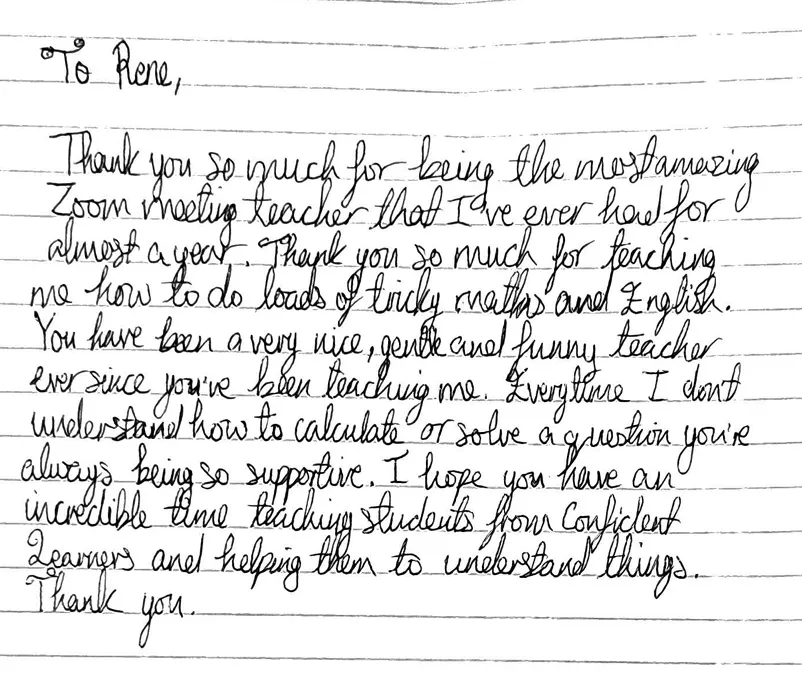 To Rene,
Thank you so much for being the most amazing
Zoom meeting teacher that I've ever had for
almost a year. Thank you so much for teaching
me how to do loads of tricky maths and English.
You have been a very nice, gentle and funny teacher
ever since you've been teaching me. Everytime I don't
understand how to calculate or solve a question you're
always being so supportive. I hope you have an
incredible time teaching students from Confident
Learners and helping them to understand things.
Thank you.